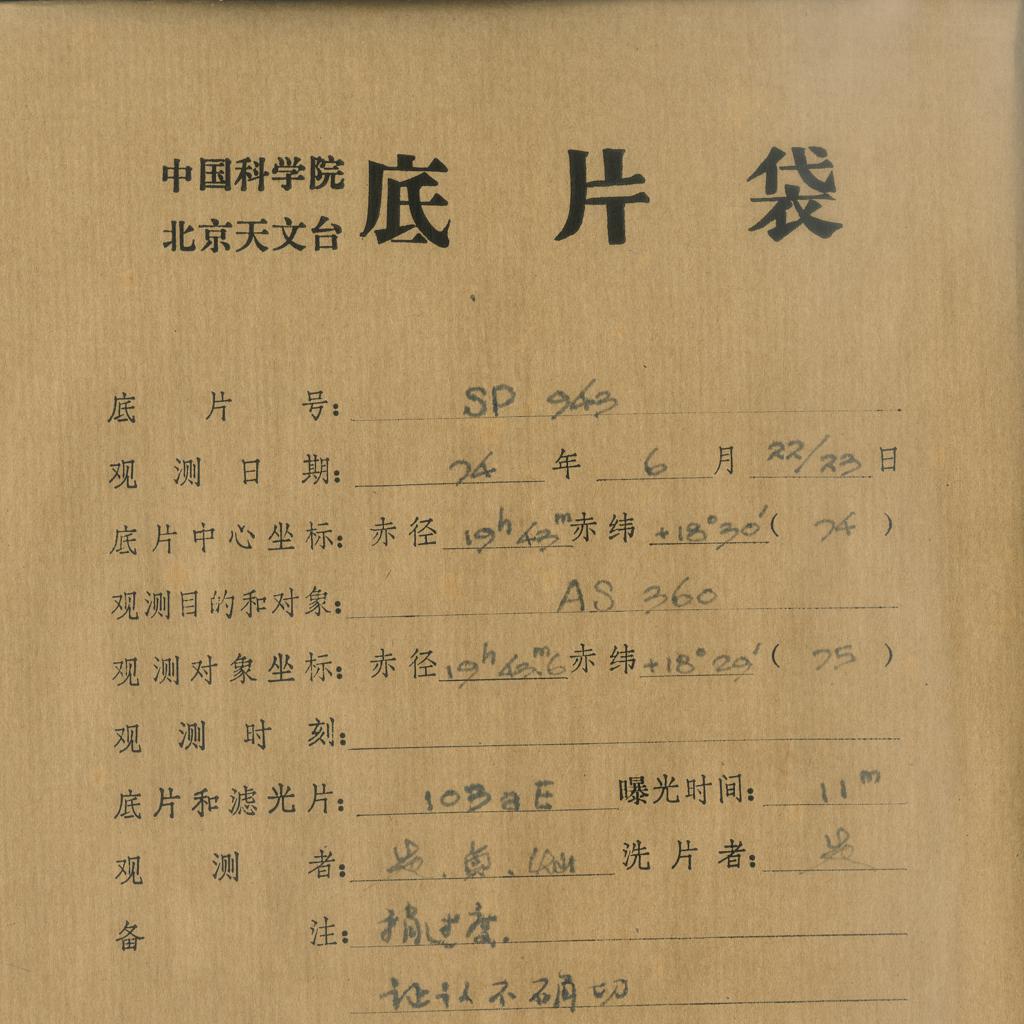 中国科学院
北京天文台
底片袋
底片号: SP 943
观测日期: 74 年 6 月 22/23 日
底片中心坐标: 赤径 19h 43m 赤纬 +18°30′ ( 74 )
观测目的和对象: AS 360
观测对象坐标: 赤径 19h 43m.6 赤纬 +18°29′ ( 75 )
观测时刻:
底片和滤光片: 103aE 曝光时间: 11m
观测者: 洗片者:
备注: 度.
证认不确切